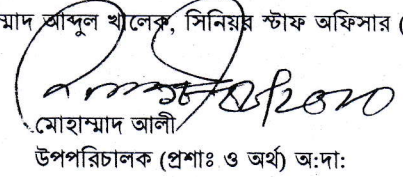 ম্মাদ আব্দুল খালেক, সিনিয়র স্টাফ অফিসার (
মোহাম্মাদ আলী
উপপরিচালক (প্রশাঃ ও অর্থ) অ:দা: